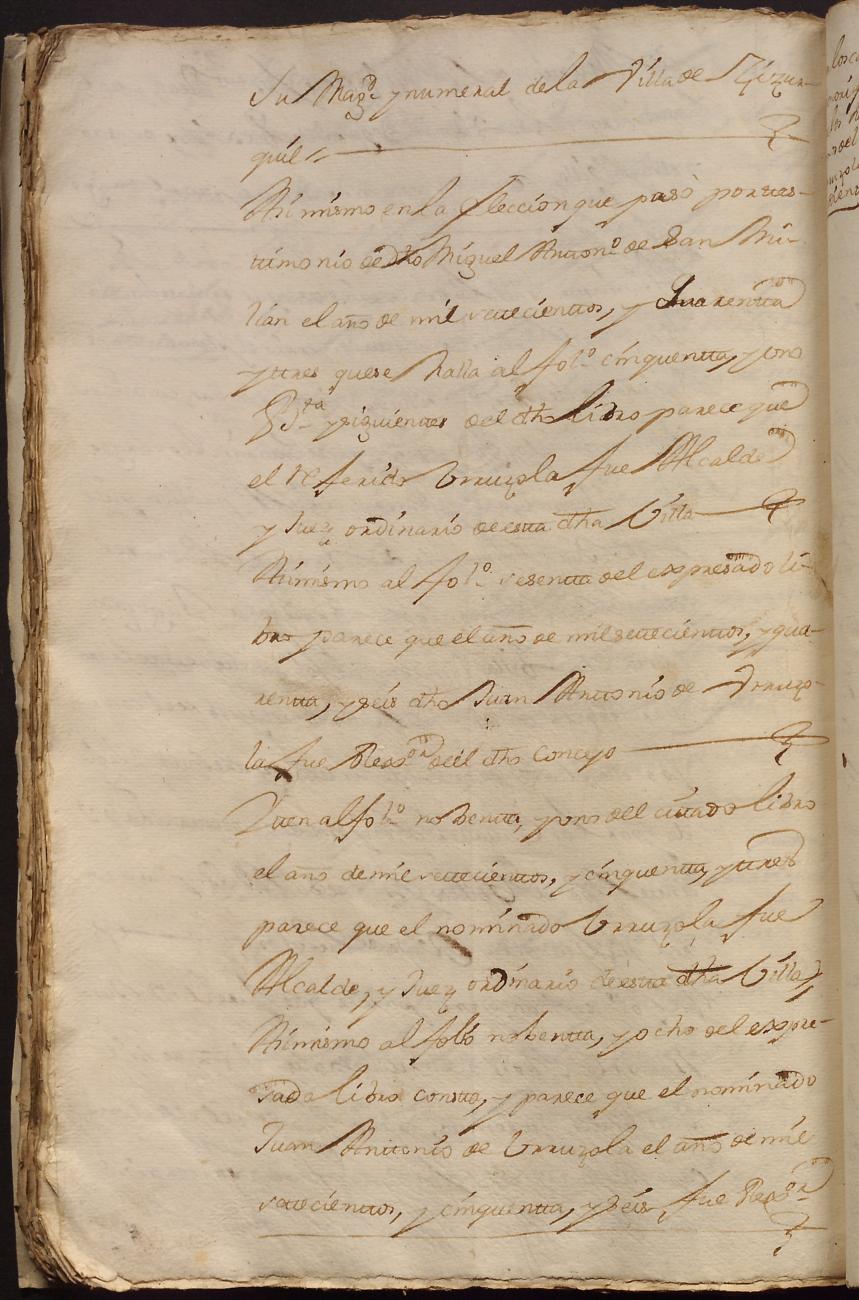 Su Magd. y numeral de la Villa de Azizur-
quil
Assimismo en la Eleccion que pasò por tes-
timonio de dho Miguel Antonº de San Mi-
llan el año de mil settecienttos, y Quarentta
y ttres que se halla al folº cinquentta, y uno
Bta y siguientes del dho Libro parece que
el referido Urruzola fue Alcalde
y Juez ordinario de estta dha Villa
Assimismo al folº sesentta del expresado li-
bro parece que el año de mil settecienttos, y qua-
rentta, y seis dho Juan Anttonio de Urruzo-
la fue Regor del dho Concejo
Itten al folº nobentta, y uno del cittado libro
el año de mil settecienttos, y cinquentta, y ttres
parece que el nominado Urruzola fue
Alcalde, y Juez ordinario de estta dha Villa
Assimismo al folio nobentta, y ocho del expre-
sado libro constta, y parece que el nominado
Juan Anttonio de Urruzola el año de mil
settecienttos, y cinquentta, y seis fue Regor